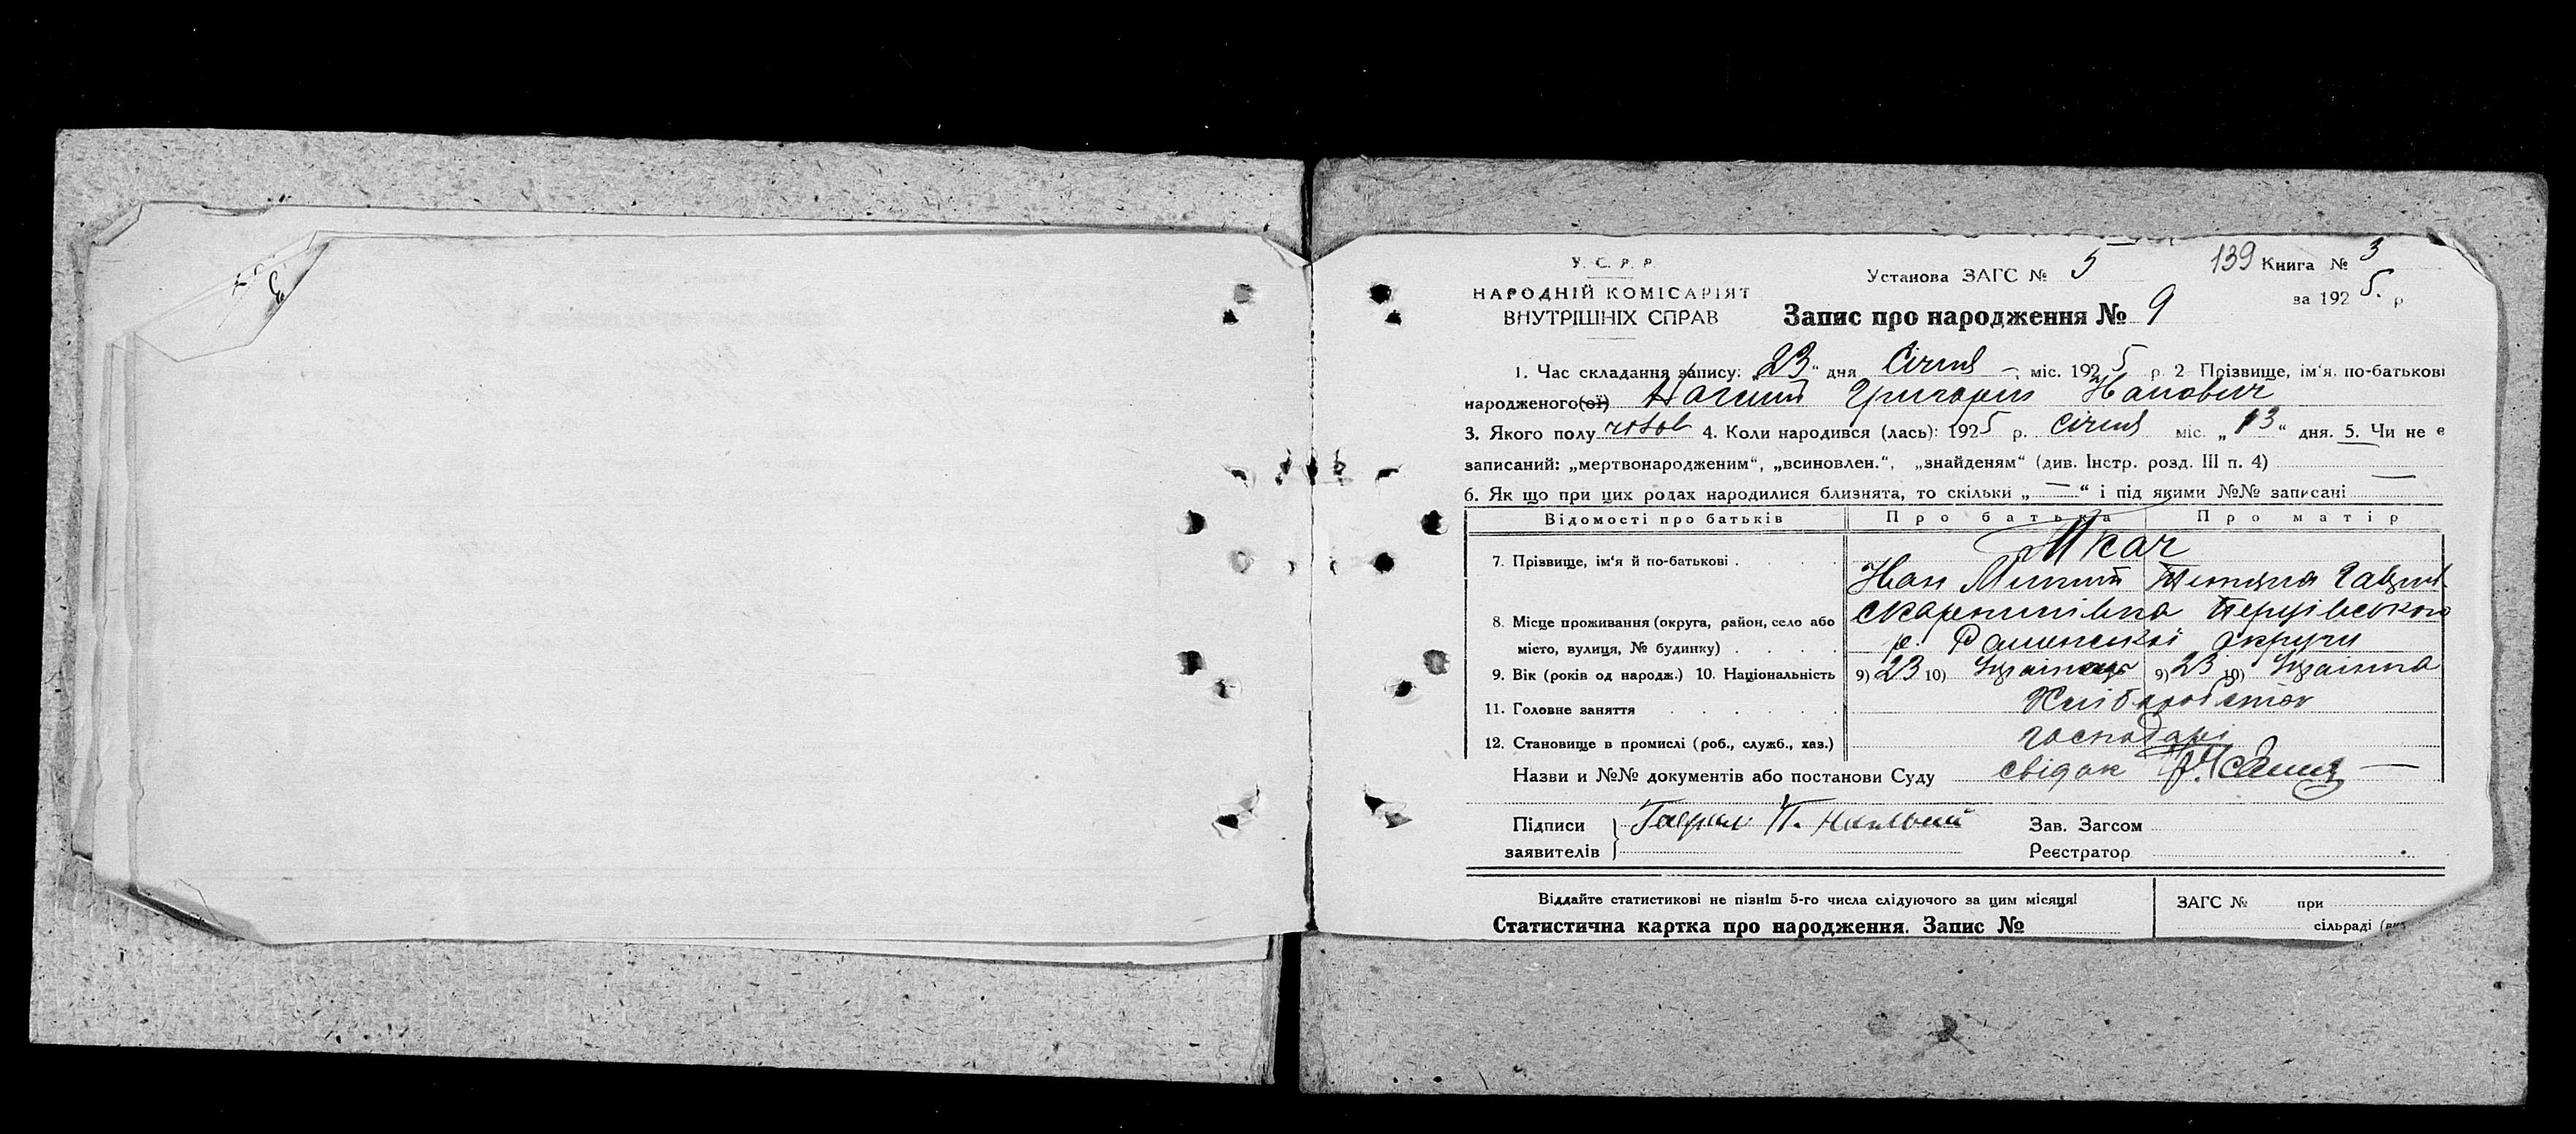 У. С. Р. Р.
НАРОДНІЙ КОМІСАРІЯТ
ВНУТРІШНІХ СПРАВ
Установа ЗАГС № 5
139 Книга № 3
за 1925. р
Запис про народження № 9
1. Час складання запису: „23“ дня Січня – міс. 1925 р. 2 Прізвище, ім'я, по-батькові
народженого(ої) Григорій
3. Якого полу чолов 4. Коли народився (лась): 1925 р. Січня міс. „13“ дня. 5. Чи не є
записаний: „мертвонародженим“, „всиновлен.“, „знайденям“ (див. Інстр. розд. III п. 4) —
6. Як що при цих родах народилися близнята, то скільки „—“ і під якими №№ записані —
Відомості про батьків Про батька Про матір
7. Прізвище, ім'я й по-батькові . . . . Ткач
8. Місце проживання (округа, район, село або
місто, вулиця, № будинку) . . . . р. Роменської округи
9. Вік (років од народж.) 10. Національність 9) 23 10) Українець 9) 23 10) Українка
11. Головне заняття . . . . . . Хлібороб
12. Становище в промислі (роб., служб., хаз.) господарі
Назви и №№ документів або постанови Суду свідок —
Підписи
заявителів
Гаврил П.
Зав. Загсом
Реєстратор
Віддайте статистикові не пізніш 5-го числа слідуючого за цим місяця!
Статистична картка про народження. Запис №
ЗАГС № при
сільраді